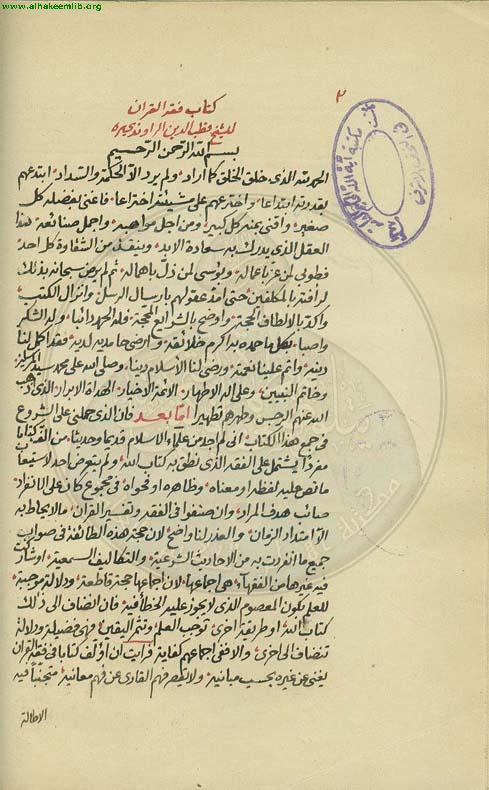 www.alhakeemlib.org
٢
كتاب فقه القران
للشيخ قطب الدين الراوندى
بسم الله الرحمن الرحيم
الحمد لله الذى خلق الخلق كما اراد ولم يرد الا الحكمة والسداد ابتدعهم
بقدرته ابتداعا واخترعهم على مشيته اختراعا فاغنى بفضله كل
صغير واقنى بمنه كل كبير ومن اجل مواهبه واجمل صنائعه هذا
العقل الذى يدرك به سعادة الابد وينقذ من الشقاوة كل احد
فطوبى لمن عز باعماله وبؤسى لمن ذل باهماله ثم لم يرض سبحانه بذلك
لرأفته بالمكلفين حتى امد عقولهم بارسال الرسل وانزال الكتب
واكد بالالطاف الحجة واوضح بالشرايع المحجة فله الحمد دائما وله الشكر
واصبا بكل ما حمده به اكرم خلائقه وارضى حامديه لديه فقد اكمل لنا
دينه واتم علينا نعمته ورضى لنا الاسلام دينا وصلى الله على محمد سيد المرسلين
وخاتم النبيين وعلى اله الاطهار الائمة الاخيار الهداة الابرار الذى اذهب
الله عنهم الرجس وطهرهم تطهيرا اما بعد فان الذى حملنى على الشروع
فى جمع هذا الكتاب انى لم اجد من علماء الاسلام قديما وحديثا من الف كتابا
مفردا يشتمل على الفقه الذى نطق به كتاب الله ولم يتعرض احد لاستيعاب
ما نص عليه لفظه او معناه وظاهره او فحواه فى مجموع كان على الانفراد
صائب هدف المراد وان صنفوا فى الفقه وتفسير القران ما لا يحاط به
الا بامتداد الزمان والعذر لنا واضح لان حجة هذه الطائفة فى صواب
جميع ما انفردت به من الاحاديث الشرعية والتكاليف السمعية او شاركت
فيه غيرها من الفقهاء هى اجماعها لان اجماعها حجة قاطعة ودلالة موجبة
للعلم بكون المعصوم الذى لا يجوز عليه الخطأ فيه فان انضاف الى ذلك
كتاب الله او طريقة اخرى توجب العلم وتثمر اليقين فهى فضيلة ودلالة
تنضاف الى اخرى والا ففى اجماعهم كفاية فرايت ان اؤلف كتابا فى فقه القران
يغنى عن غيره بحسب مبانيه ولا يقصر فهم القارى عن فهم معانيه متجنبا فيه
الاطالة